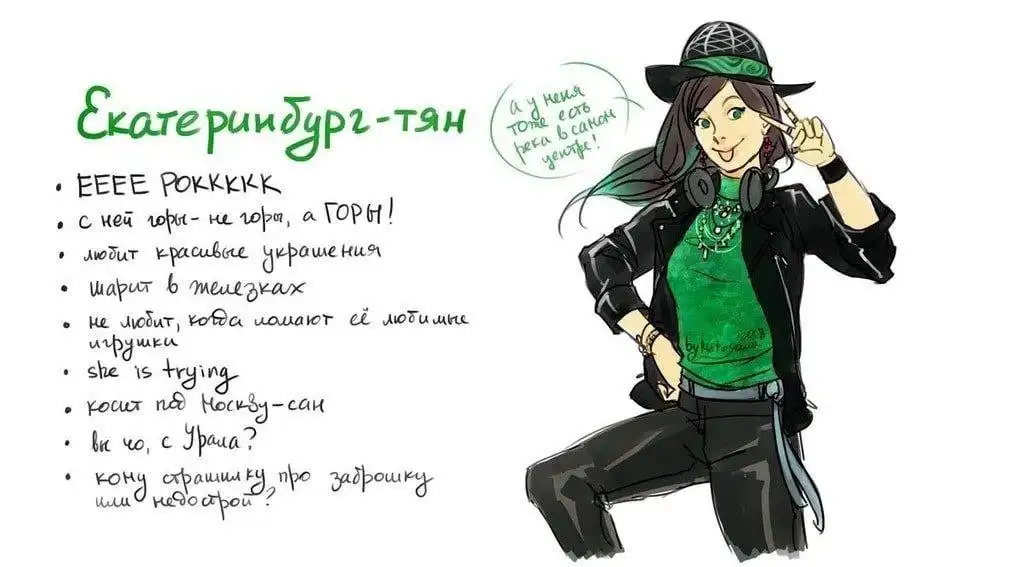 Екатеринбург-тян
• ЕЕЕЕ РОККККК
• с ней горы - не горы, а ГОРЫ!
• любит красивые украшения
• шарит в железках
• не любит, когда ломают её любимые
игрушки
• she is trying
• косит под Москву-сан
• вы чо, с Урала?
• кому страшилку про заброшку
или недострой?
а у меня
тоже есть
река в самом
центре!
2018
by